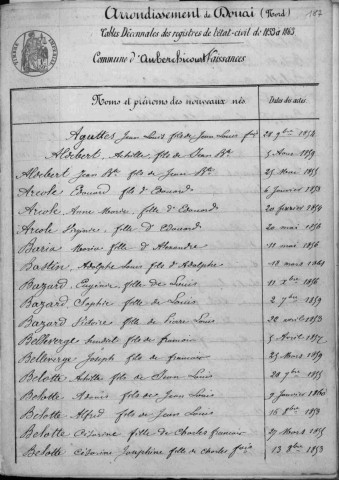 187
Arrondissement de Douai (Nord)
Tables Décennales des registres de l'état-civil de 1853 à 1863.
Commune d'Auberchicourt Naissances
Noms et prénoms des nouveaux nés Dates des actes
Agultes Jean Louis fils de Jean Louis 28 9bre 1854
Aldebert, Achille, fils de Jean Bte 5 Aout 1859
Aldebert Jean Bte fils de Jean Bte 25 Mai 1855
Arcole Edouard fils d'Edouard 6 janvier 1853
Arcole Anne Marie, fille d'Edouard 20 février 1854
Arcole Virginie, fille d'Edouard 20 mai 1856
Baria Maria fille d'Alexandre 11 mai 1856
Bastin, Adolphe Louis fils d'Adolphe 18 mars 1861
Bazard, Eugénie, fille de Louis 11 Xbre 1856
Bazard Sophie fille de Louis 2 7bre 1859
Bazard Victoire fille de Pierre Louis 22 avril 1853
Bellevergé fils de francois 5 Avril 1857
Bellevergé Joseph fils de francois 25 Mars 1859
Belotte Achille fils de Jean Louis 20 7bre 1855
Belotte Adonis fils de Jean Louis 9 janvier 1860
Belotte Alfred fils de Jean Louis 16 8bre 1853
Belotte Césarine fille de Charles francois 27 Mars 1855
Belotte Césarine Joséphine fille de Charles fois 13 8bre 1853